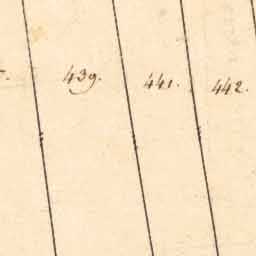 439. 441. 442.